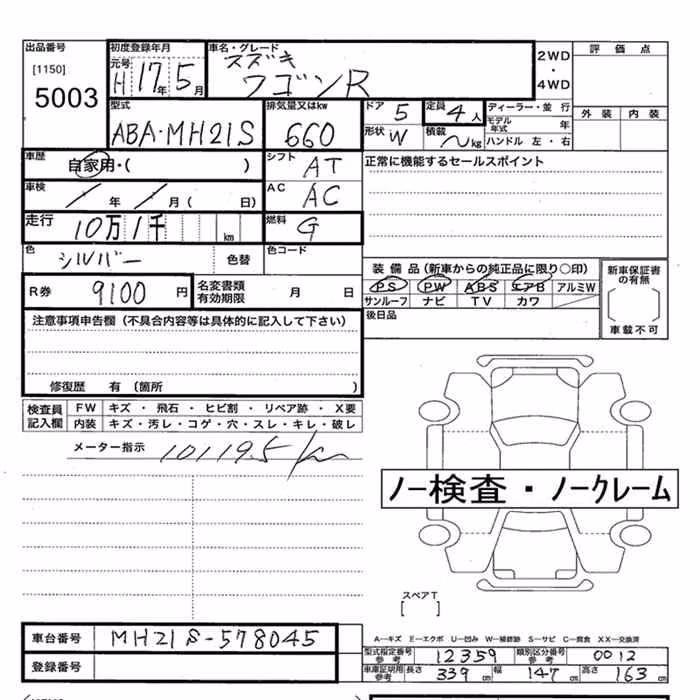 出品番号
[1150]
5003
初度登録年月
元号
H 17年 5月
車名・グレード
スズキ
ワゴンR
2WD
・
4WD
評 価 点
外 装 内 装
型式
ABA-MH21S
排気量又はkw
660
ドア 5
定員 4人
形状 W
積載 〜kg
ディーラー・並 行
モデル年式 年
ハンドル 左・右
車歴
自家用・( )
シフト AT
正常に機能するセールスポイント
車検
/ 年 / 月 ( 日)
AC AC
走行
10万1千 km
燃料 G
色
シルバー
色替
色コード
装 備 品 (新車からの純正品に限り○印)
PS PW ABS エアB アルミW
サンルーフ ナビ TV カワ
新車保証書
の有無
車載不可
R券 9100 円
名変書類
有効期限 月 日
後日品
注意事項申告欄 (不具合内容等は具体的に記入して下さい)
修復歴 有 (箇所 )
検査員
記入欄
FW キズ ・ 飛石 ・ ヒビ割 ・ リペア跡 ・ X要
内装 キズ・汚レ・コゲ・穴・スレ・キレ・破レ
メーター指示 101195km
ノー検査・ノークレーム
スペアT
[ ]
A―キズ E―エクボ U―凹み W―補修跡 S―サビ C―腐食 XX―交換済
車台番号 MH21S-578045
登録番号
型式指定番号
参 考
12359
類別区分番号
参 考
0012
車庫証明用
参 考
長さ 339cm 幅 147cm 高さ 163cm